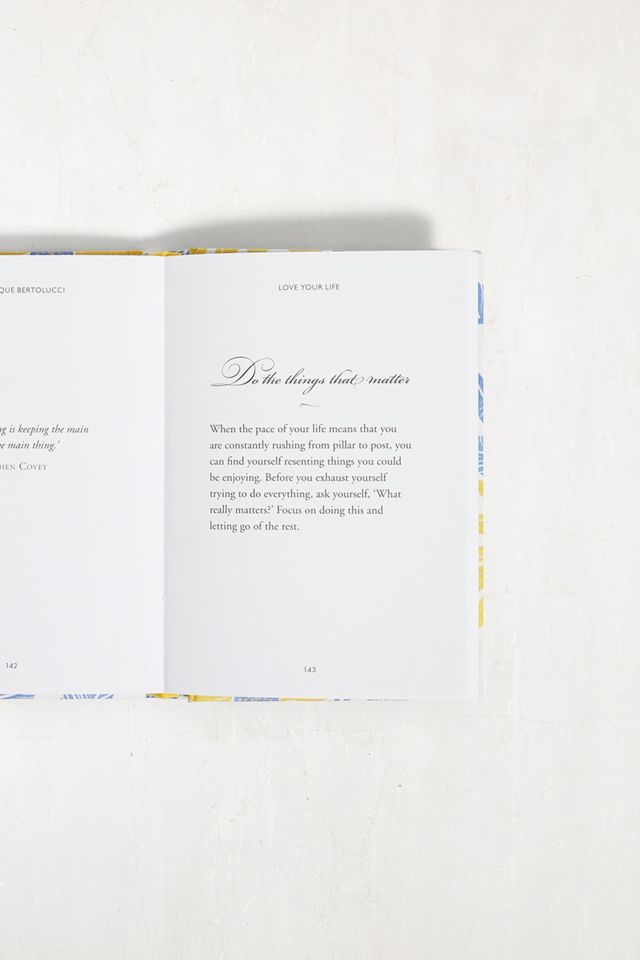 BERTOLUCCI
is keeping the main
main thing.'
COVEY
142
LOVE YOUR LIFE
Do the things that matter
When the pace of your life means that you
are constantly rushing from pillar to post, you
can find yourself resenting things you could
be enjoying. Before you exhaust yourself
trying to do everything, ask yourself, ‘What
really matters?’ Focus on doing this and
letting go of the rest.
143